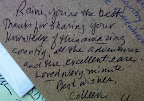 Rami, you're the best
Thanks for sharing your
knowledge of this amazing
country, all the adventures
and the excellent care.
Loved every minute
Best wishes
Colleen